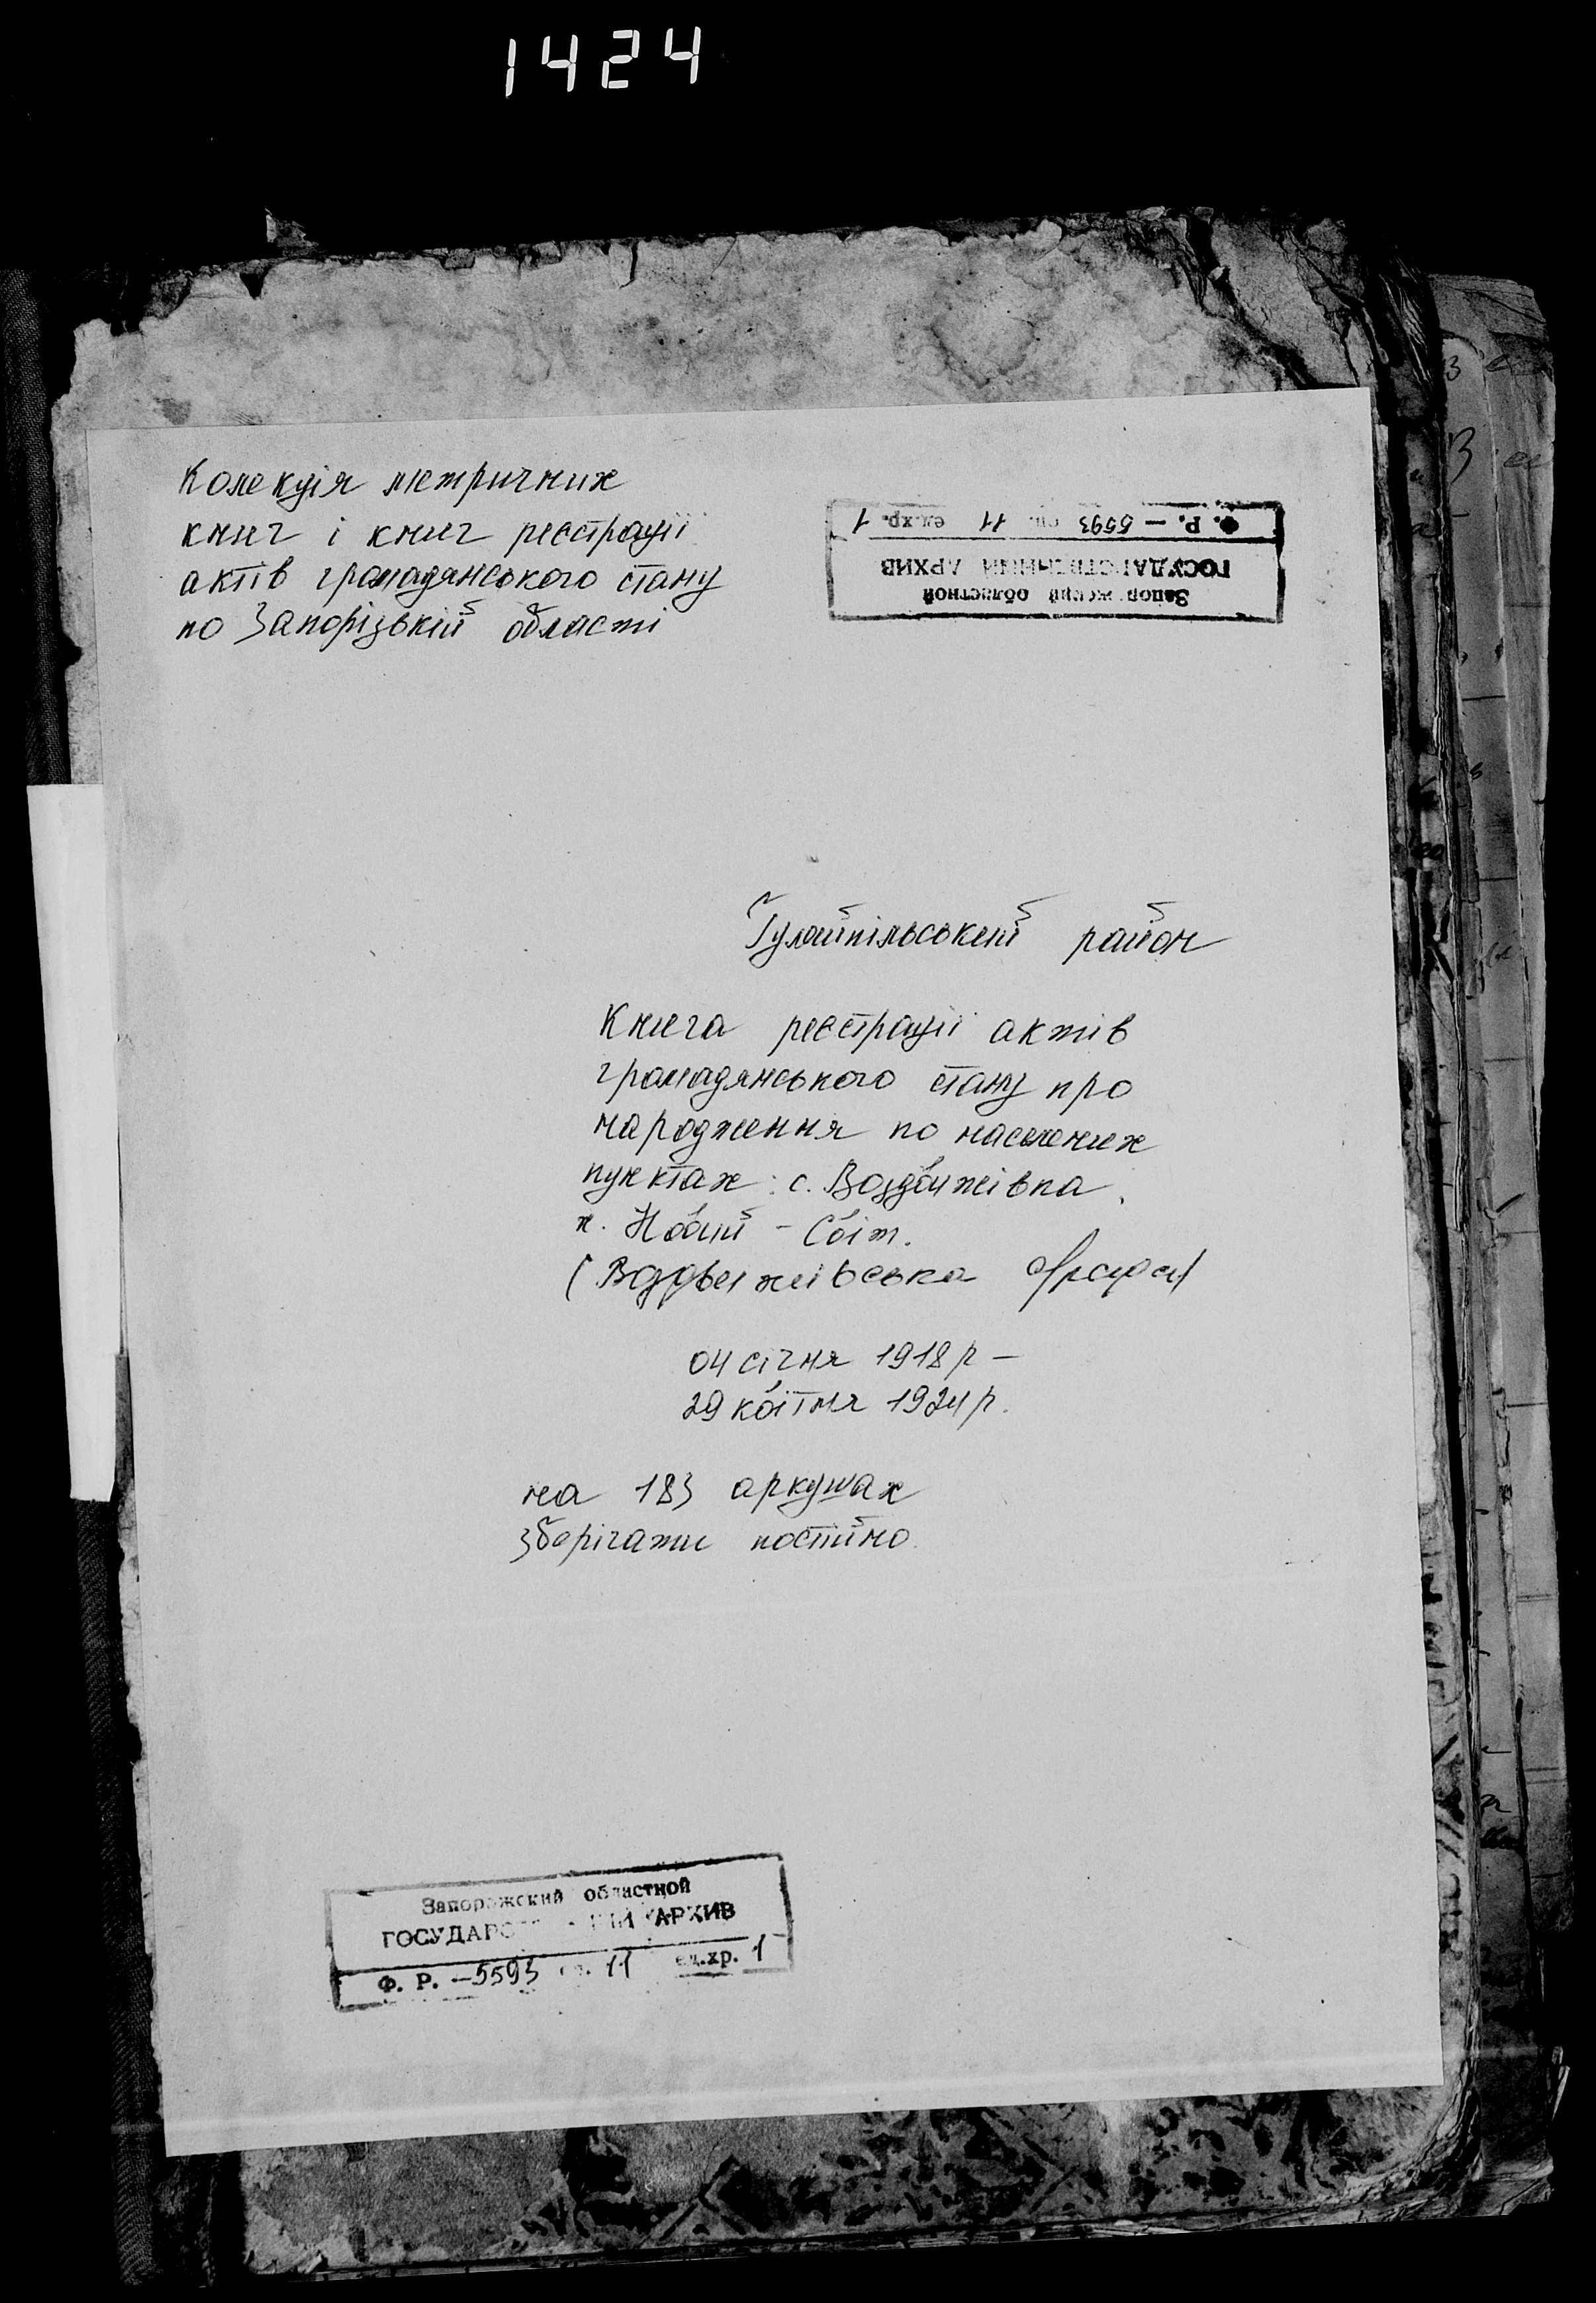 1424
Колекція метричних
книг і книг реєстрації
актів громадянського стану
по Запорізькій області
Запорожский областной
ГОСУДАРСТВЕННЫЙ АРХИВ
Ф. Р. – 5593 оп. 11 ед.хр. 1
Гуляйпільський район
Книга реєстрації актів
громадянського стану про
народження по населених
пунктах: с. Воздвижівка,
х. Новий - Світ.
(Воздвижівська
04 січня 1918 р –
29 квітня 1924 р.
на 183 аркушах
зберігати постійно.
Запорожский областной
ГОСУДАРСТВЕННЫЙ АРХИВ
Ф. Р. – 5593 оп. 11 ед.хр. 1